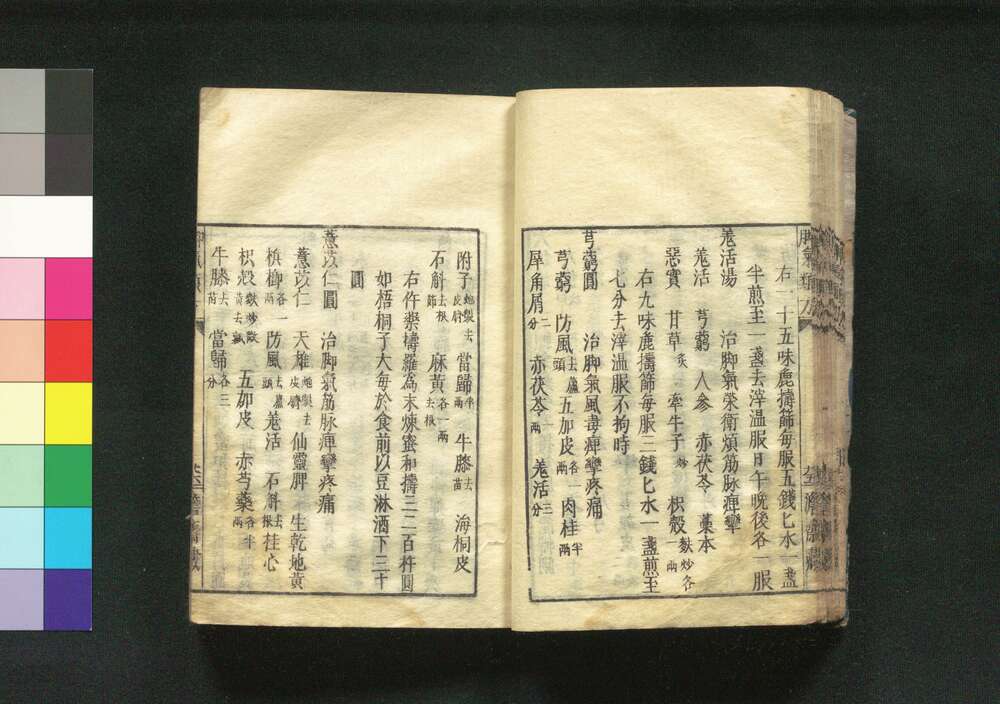 右一十五味麄擣篩每服五錢匕水一盞
半煎至一盞去滓溫服日午晚後各一服
羗活湯 治脚氣榮衛煩筋脉痺攣
羗活 芎藭 人參 赤茯苓 藁本
惡實 甘草炙 牽牛子炒 枳殼麩炒各一兩
右九味麄擣篩每服三錢匕水一盞煎至
七分去滓溫服不拘時
芎藭圓 治脚氣風毒痺攣疼痛
芎藭 防風去蘆頭 五加皮各一兩 肉桂半兩
犀角屑二分 赤茯苓兩 羗活三分
附子炮製去皮臍 當歸半兩 牛膝去苗 海桐皮
石斛去根節 麻黃各一兩去根
右件藥擣羅為末煉蜜和擣三二百杵圓
如梧桐子大每於食前以豆淋酒下三十
圓
薏苡仁圓 治脚氣筋脉痺攣疼痛
薏苡仁 天雄炮製去皮臍 仙靈脾 生乾地黃
檳榔各一兩 防風去蘆頭 羗活 石斛去根 桂心
枳殼麩炒微黃去瓤 五加皮 赤芍藥各半兩
牛膝去苗 當歸各三分